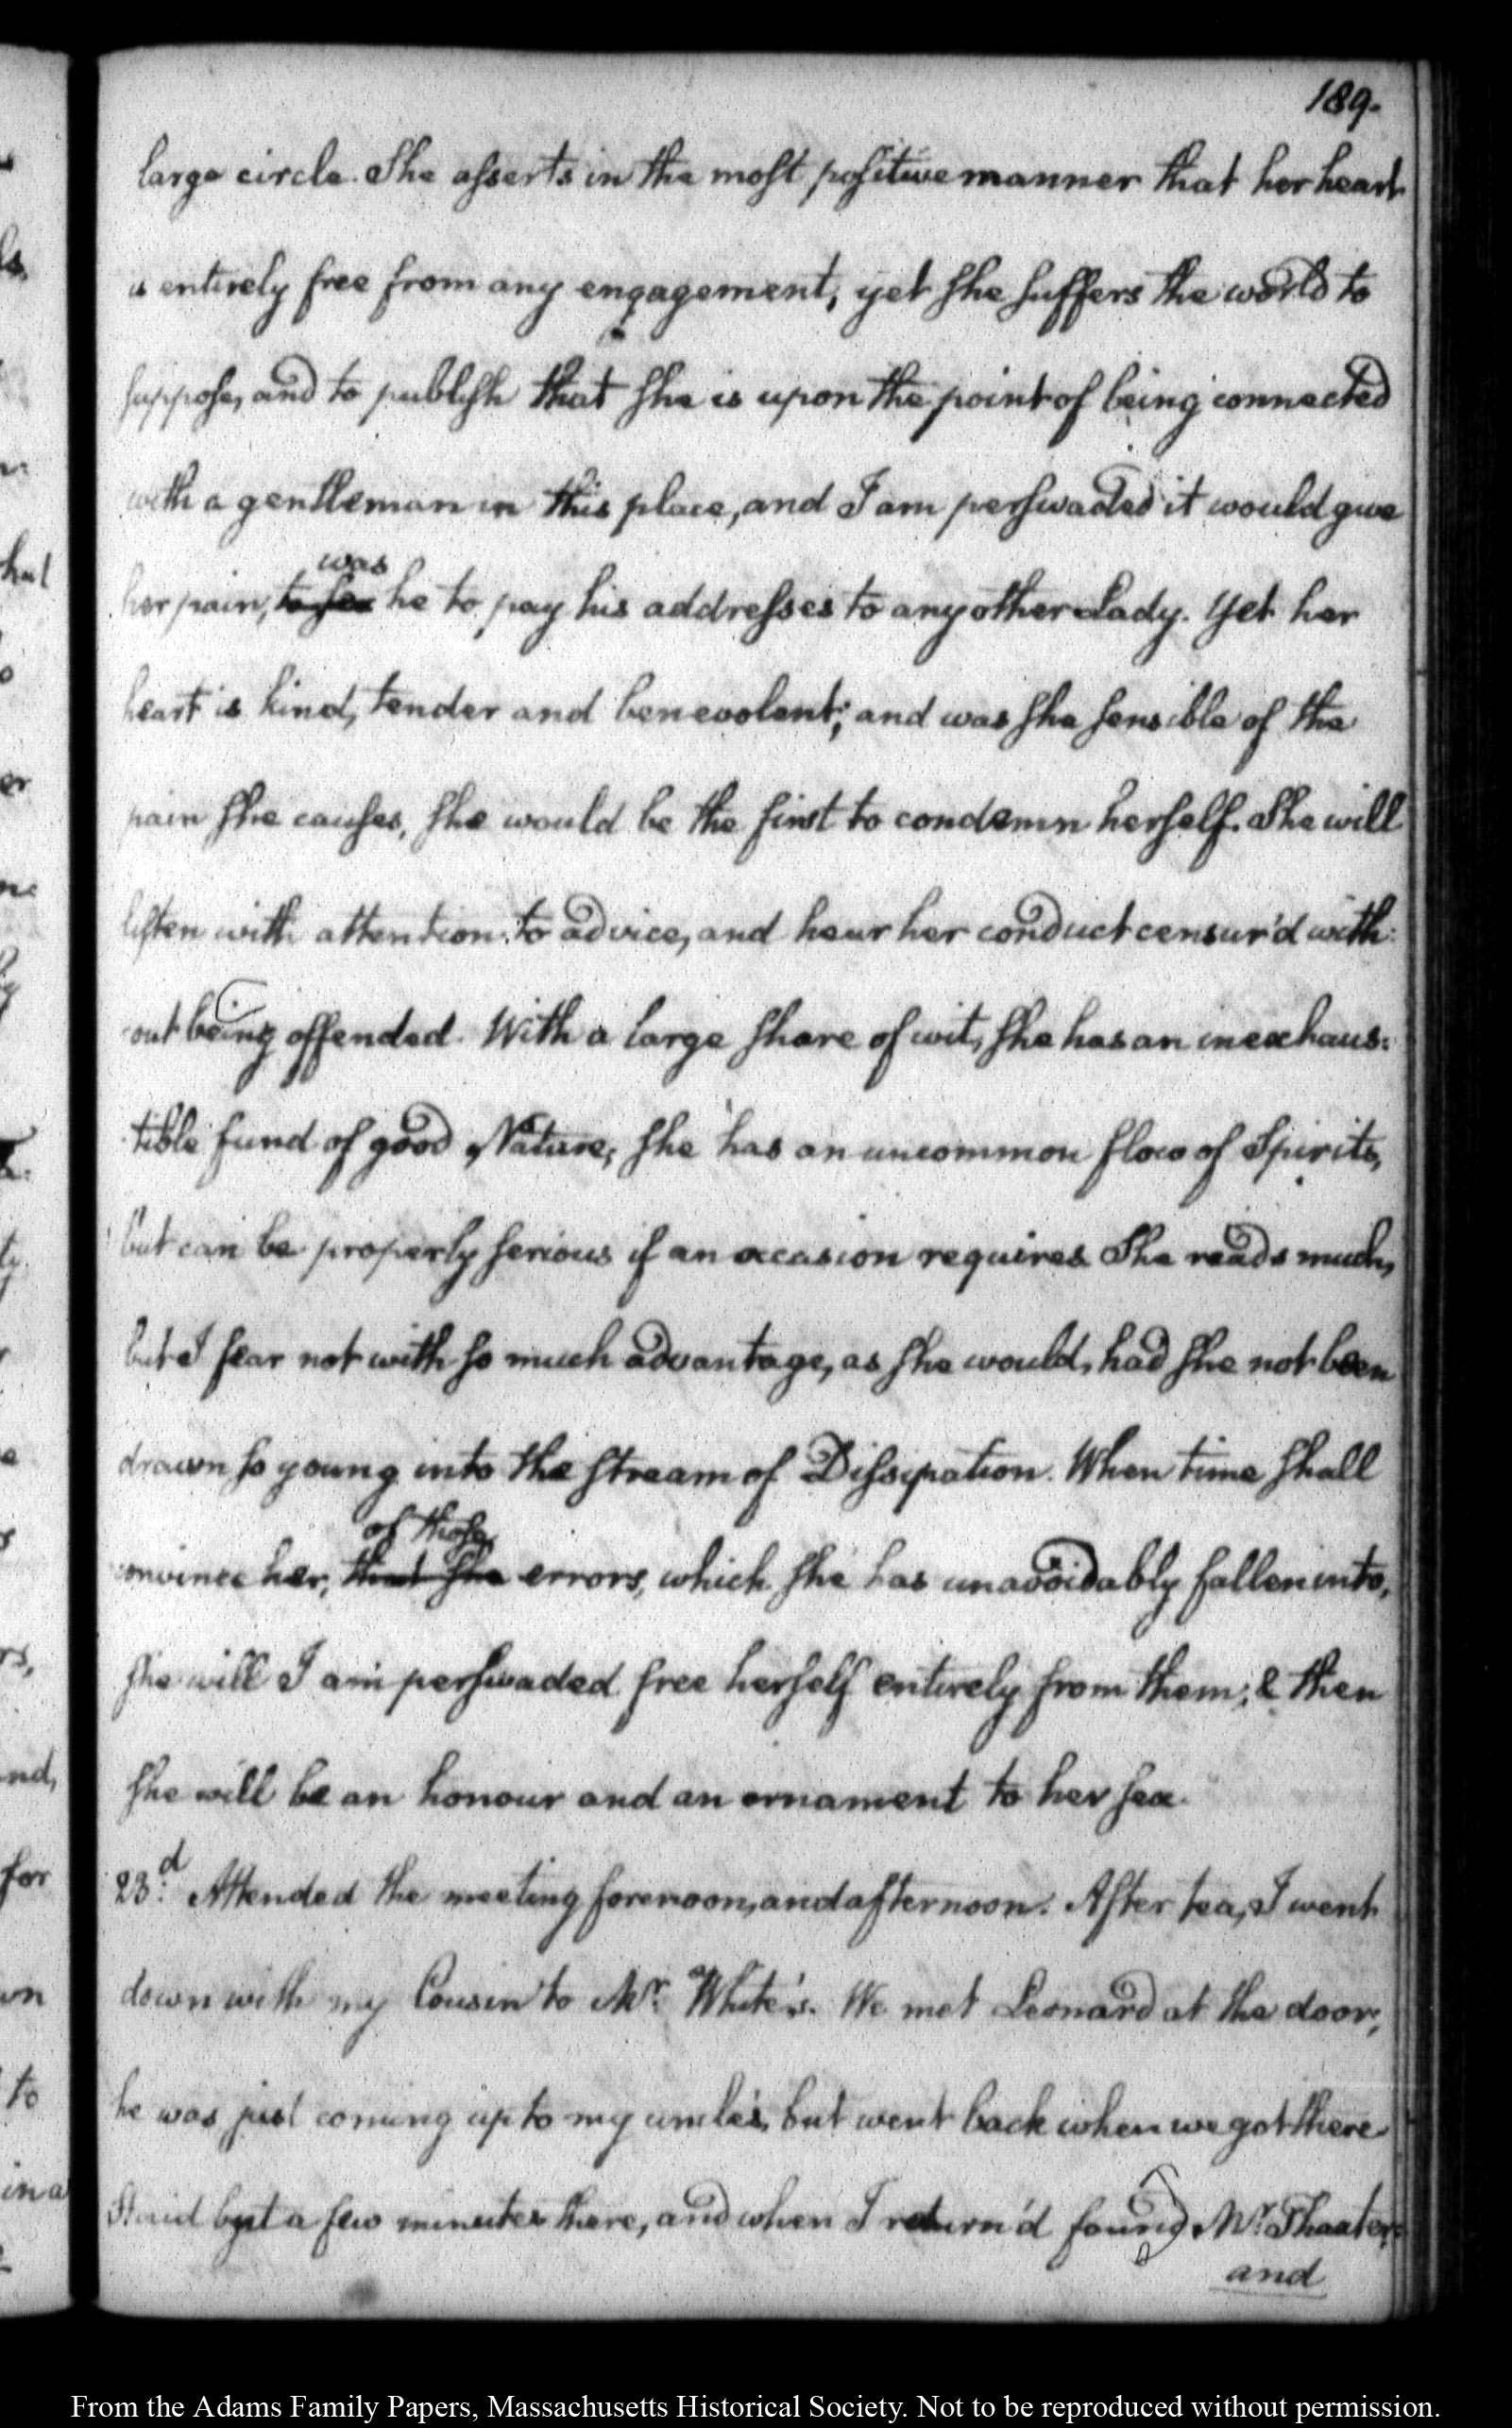 189.
large circle. She asserts in the most positive manner that her heart
is entirely free from any engagement, yet she suffers the world to
suppose, and to publish that she is upon the point of being connected
with a gentleman in this place, and I am perswaded it would give
was
her pain, to see he to pay his addresses to any other Lady. Yet her
heart is kind, tender and benevolent; and was she sensible of the
pain she causes, she would be the first to condemn herself. She will
listen with attention to advice, and hear her conduct censur'd with:
out being offended. With a large share of wit, she has an inexhaus:
tible fund of good Nature; she has an uncommon flow of Spirits,
but can be properly serious if an occasion requires She reads much,
but I fear not with so much advantage, as she would, had she not been
drawn so young into the stream of Dissipation. When time shall
of those
convince her, that she errors, which she has unavoidably fallen into,
she will I am perswaded free herself entirely from them; & then
she will be an honour and an ornament to her sex.
23.d Attended the meeting forenoon, and afternoon. After tea, I went
down with my Cousin to Mr. White's. We met Leonard at the door,
he was just coming up to my uncle's, but went back when we got there
Staid but a few minutes there, and when I return'd found Mr. Thaxter,
and
From the Adams Family Papers, Massachusetts Historical Society. Not to be reproduced without permission.